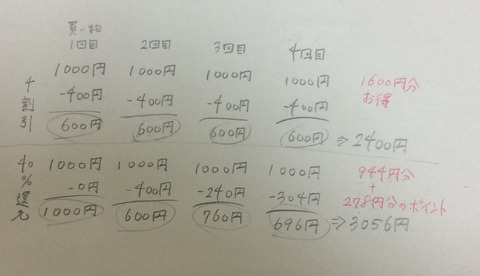 買い物
1回目 2回目 3回目 4回目
1000円 1000円 1000円 1000円 1600円分
-400円 -400円 -400円 -400円 お得
600円 600円 600円 600円 ⇒2400円
割引
40%還元
1000円 1000円 1000円 1000円 944円分
-0円 -400円 -240円 -304円 +
278円分のポイント
1000円 600円 760円 696円 ⇒3056円